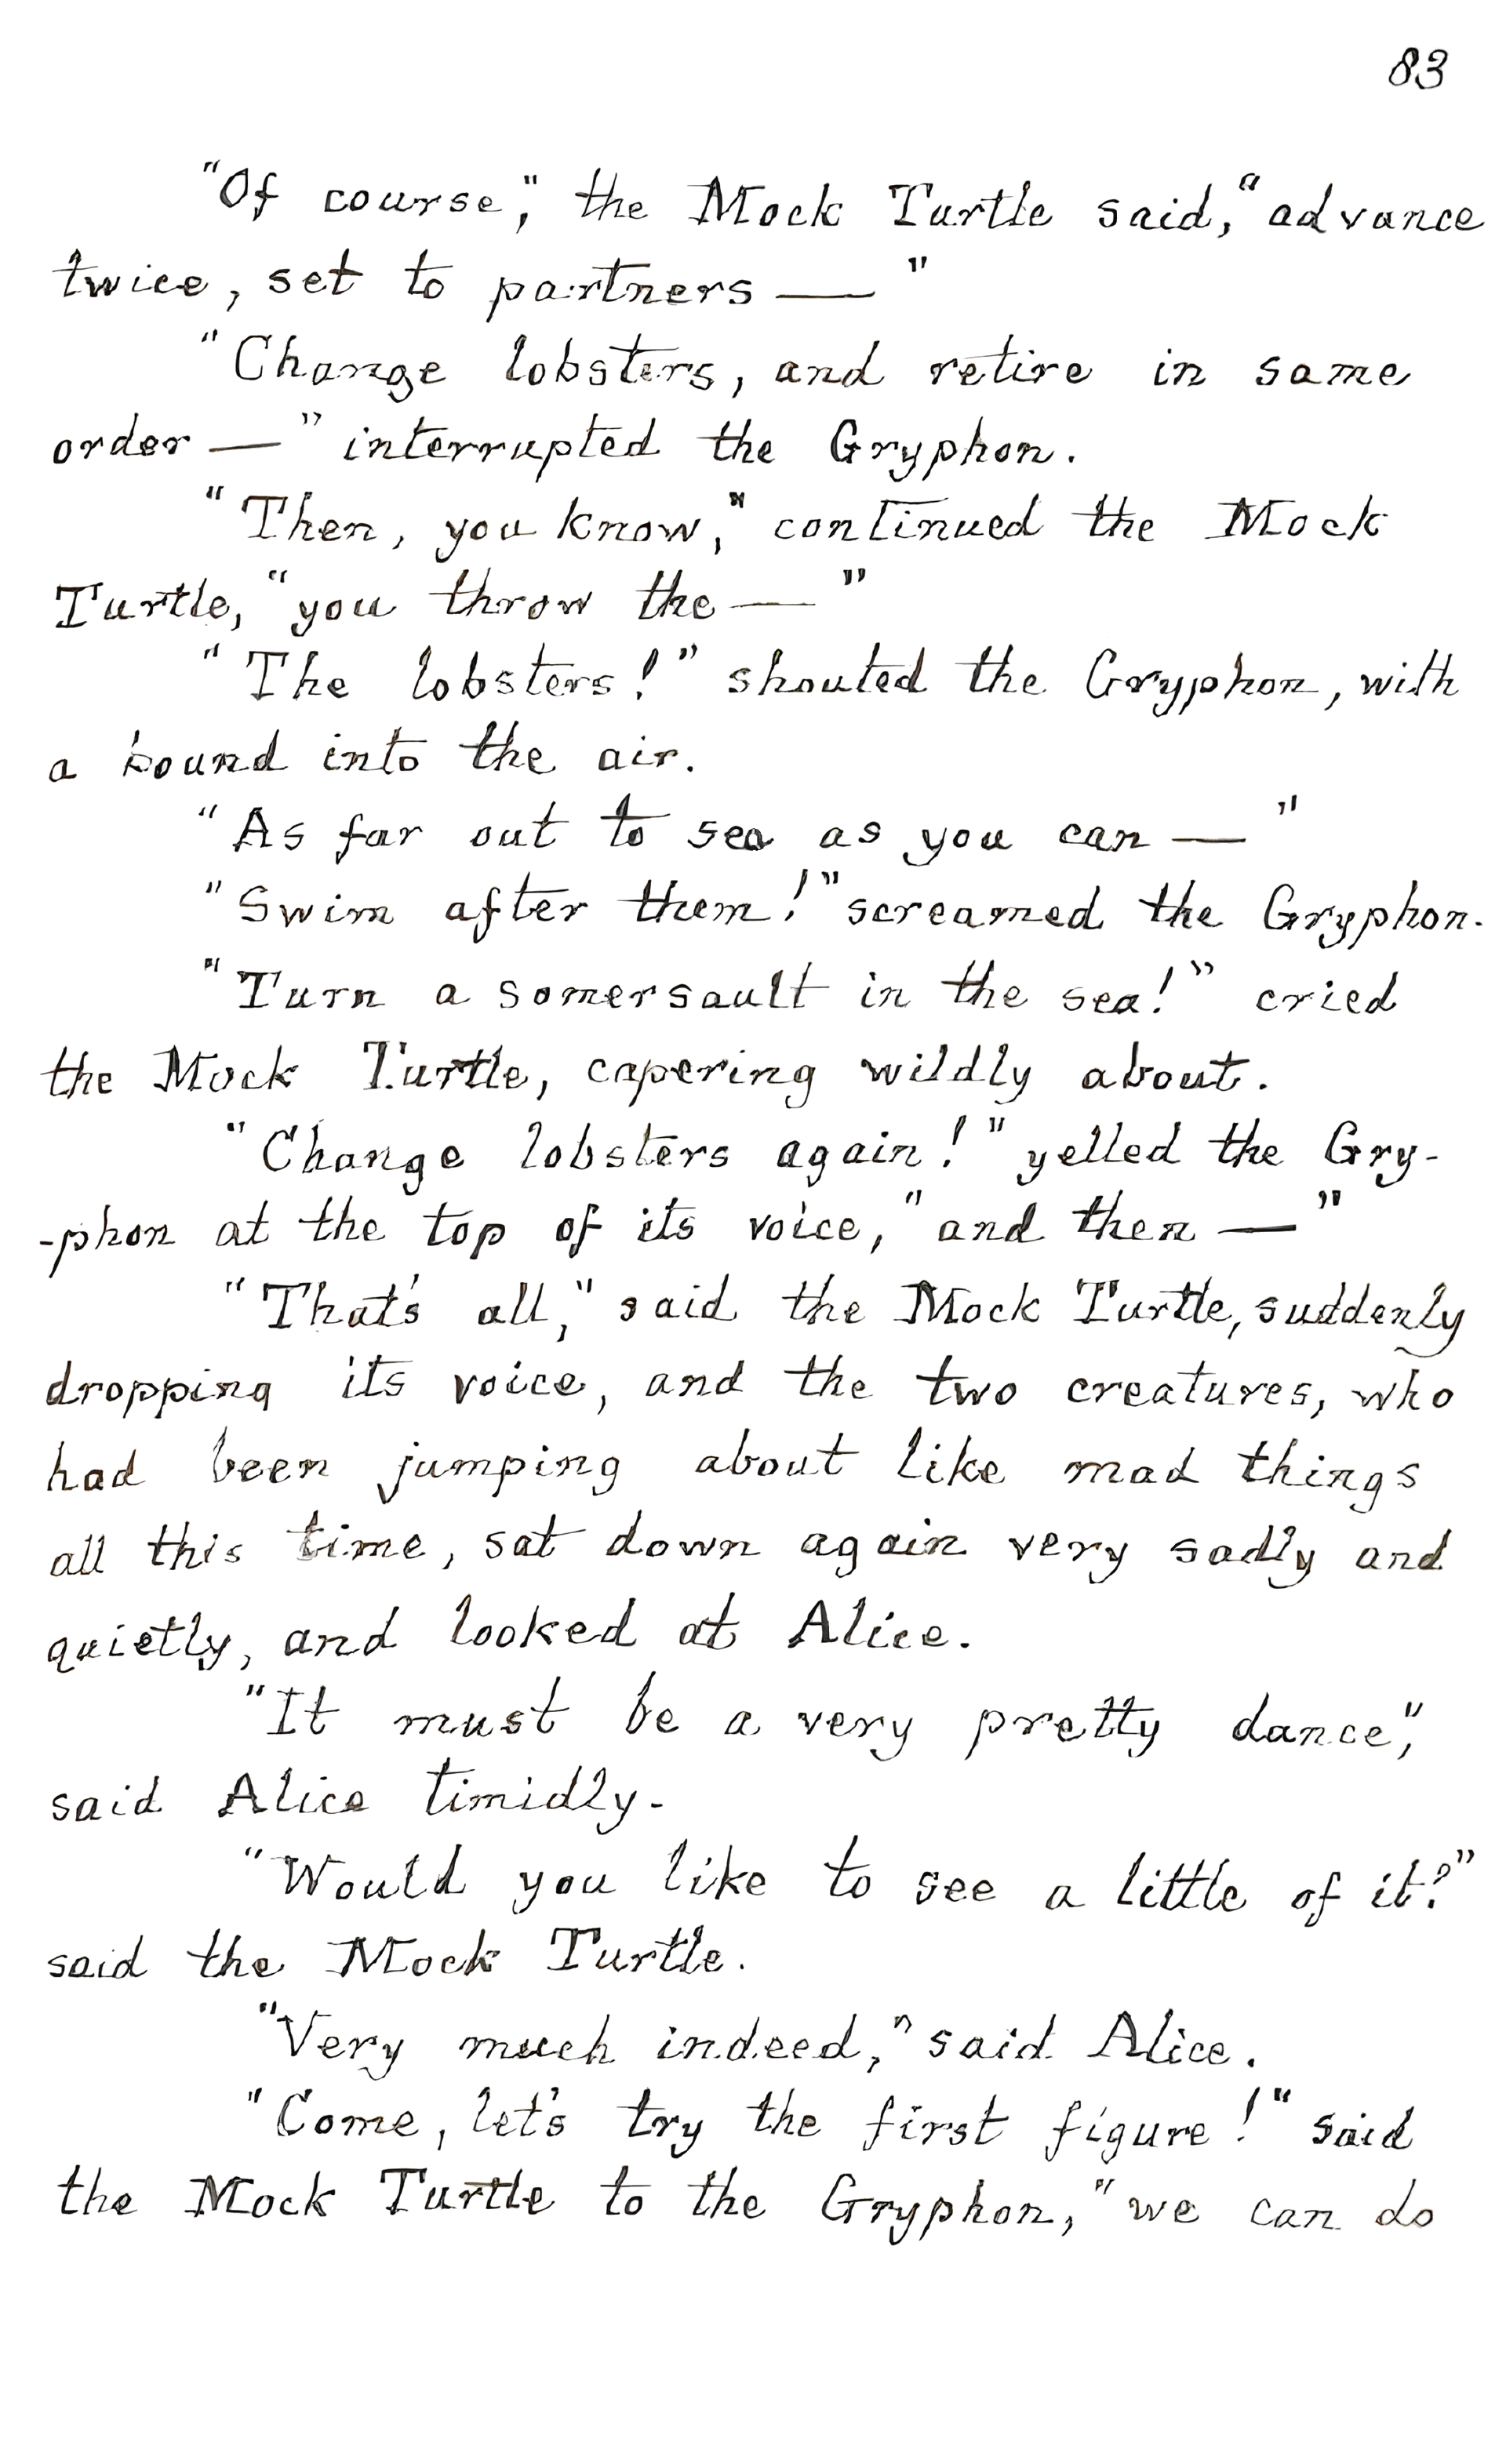 83
"Of course," the Mock Turtle said, "advance
twice, set to partners — "
"Change lobsters, and retire in same
order — " interrupted the Gryphon.
"Then, you know," continued the Mock
Turtle, "you throw the — "
"The lobsters!" shouted the Gryphon, with
a bound into the air.
"As far out to sea as you can — "
"Swim after them!" screamed the Gryphon.
"Turn a somersault in the sea!" cried
the Mock Turtle, capering wildly about.
"Change lobsters again!" yelled the Gry-
-phon at the top of its voice, "and then — "
"That's all," said the Mock Turtle, suddenly
dropping its voice, and the two creatures, who
had been jumping about like mad things
all this time, sat down again very sadly and
quietly, and looked at Alice.
"It must be a very pretty dance,"
said Alice timidly.
"Would you like to see a little of it?"
said the Mock Turtle.
"Very much indeed," said Alice.
"Come, let's try the first figure!" said
the Mock Turtle to the Gryphon, "we can do